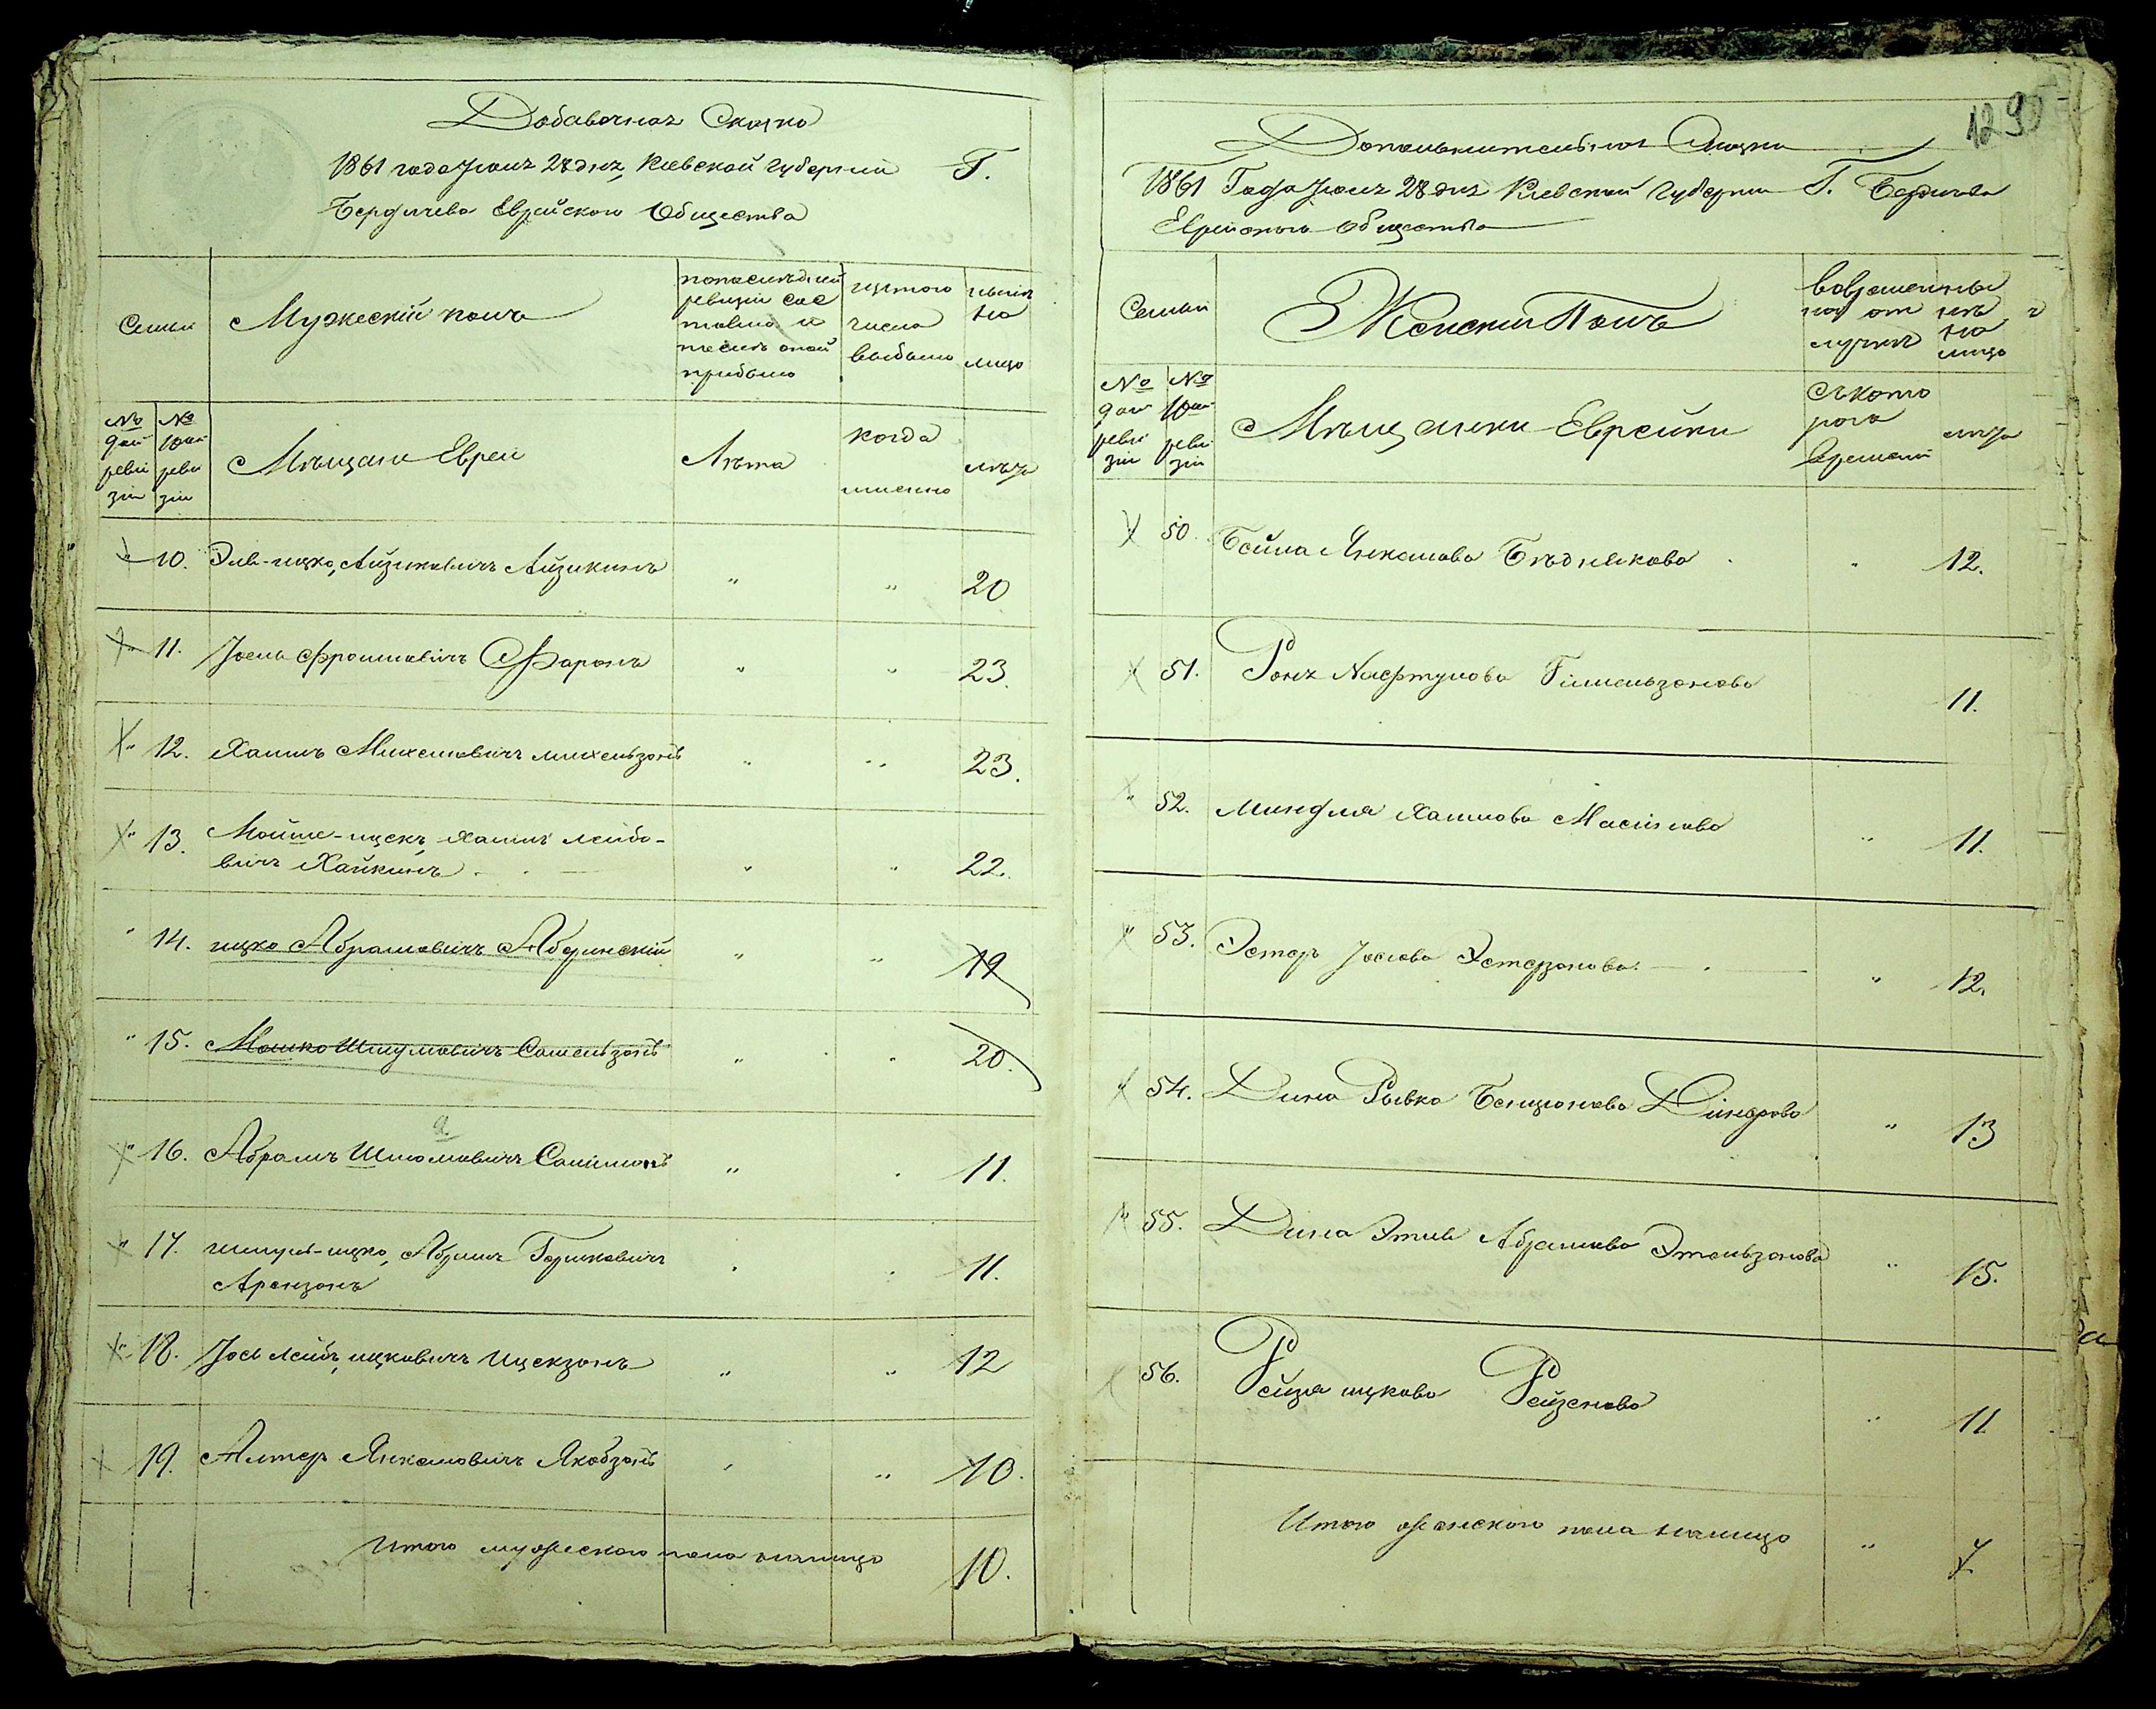 Добавочная Сказка
1861 года Іюня 28 дня, Кіевской Губерніи Г.
Бердичева Еврейского Общества
Семьи
Мужескій полъ
по последней
ревизіи сос
тояло и
после оной
прибыло
изтого
числа
выбыло
ныне
на
лицо
№ 9ой ревизіи
№ 10ой ревизіи
Мѣщане Евреи
Лѣта
когда
именно
лѣта
" 10. Эль-ицко, Айзиковичъ Айзикинъ " " 20
" 11. Іоель Фроимовичъ Фаронъ " " 23.
" 12. Хаимъ Михелевичъ михельзонъ " " 23.
" 13. Мойше-ицекъ, Хаимъ лейбо-
вичъ Хайкинъ " " 22.
" 14. ицко Абрамовичъ " " 19
" 15. Мошко Шмулевичъ " " 20.
" 16. Абрамъ Шломовичъ " 11.
а
" 17. шмуль-ицко, Абрамъ Гершковичъ
Аронзонъ 11.
" 18. Іось лейбъ, ицковичъ Ицекзонъ " " 12
19. Алтеръ Янкелевичъ Якобзонъ " " 10.
Итого мужеского пола налицо 10.
129
Дополнительная Сказка
1861 Года Іюня 28 дня Кіевской Губерніи Г. Бердичева
Еврейского общества
Семьи
Женскій Полъ
вовремен
ной от
лучке
ны
не
на
лицо
№ 9ой ревизіи
№ 10ой ревизіи
Мѣщанки Еврейки
Съкото
рого
времени
лѣта
50. Бейла Янкелева Бѣднякова " 12.
" 51. Роня Нафтулова Гимельзонова 11.
" 52. Миндля Хаимова " 11.
" 53. Эстеръ Іосіова Эстерзонова " 12.
" 54. Дина Рывка Бенціонова " 13
" 55. Дина Этля Абрамова Этельзонова " 15.
56. Рейзя ицкова Рейзенова " 11
Итого женского пола налицо " 7